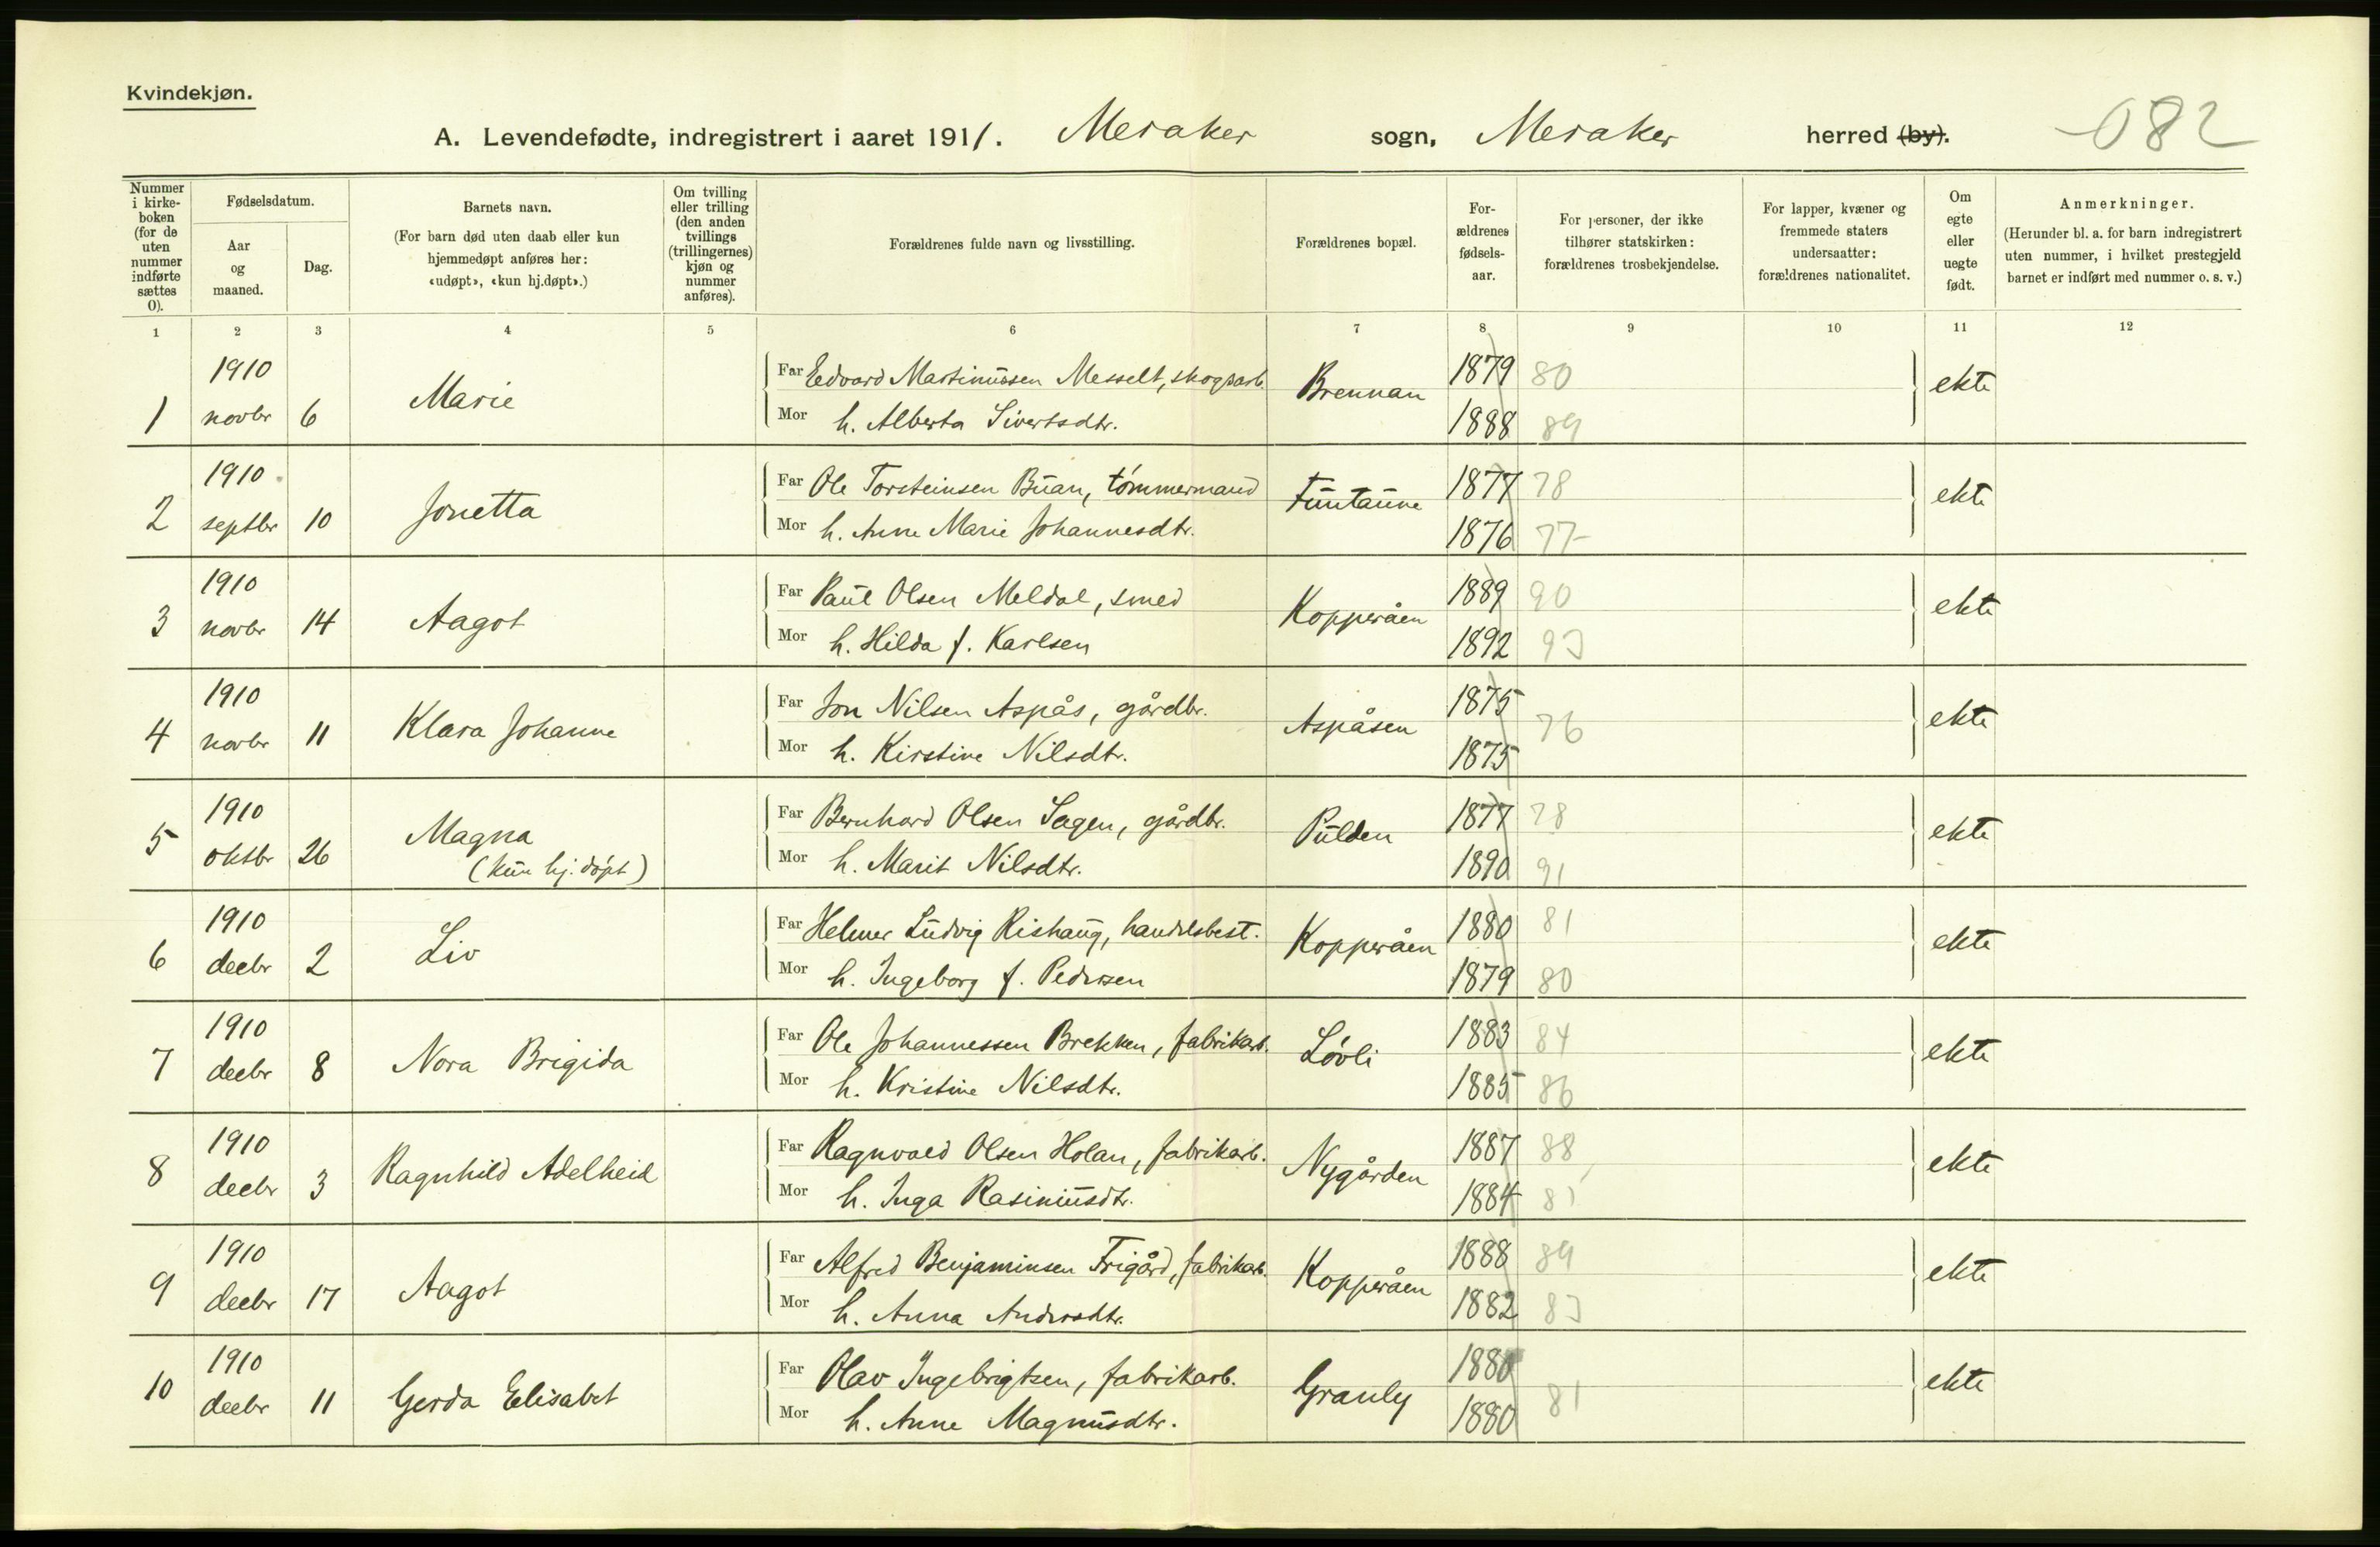 Kvindekjøn.
A. Levendefødte, indregistrert i aaret 1911. Meraker sogn, Meraker herred (by). 082
Nummer i kirke-boken (for de uten nummer indførte sættes 0).
Fødselsdatum.
Aar og maaned.
Dag.
Barnets navn.
(For barn død uten daab eller kun hjemmedøpt anføres her: «udøpt», «kun hj.døpt».)
Om tvilling eller trilling (den anden tvillings (trillingernes) kjøn og nummer anføres).
Forældrenes fulde navn og livsstilling.
Forældrenes bopæl.
For-ældrenes fødsels-aar.
For personer, der ikke tilhører statskirken: forældrenes trosbekjendelse.
For lapper, kvæner og fremmede staters undersaatter: forældrenes nationalitet.
Om egte eller uegte født.
Anmerkninger.
(Herunder bl. a. for barn indregistrert uten nummer, i hvilket prestegjeld barnet er indført med nummer o. s. v.)
1 2 3 4 5 6 7 8 9 10 11 12
1910 Far Edvard Martinussen Messelt, skogsarb. 1879 80
1 novbr 6 Marie Brennan ekte
Mor h. Alberta Sivertsdtr. 1888 89
1910 Far Ole Torsteinsen Buan, tømmermand 1877 78
2 septbr 10 Jonetta Funtaune ekte
Mor h. Anne Marie Johannesdtr. 1876 77
1910 Far Paul Olsen Meldal, smed 1889 90
3 novbr 14 Aagot Kopperåen ekte
Mor h. Hilda f. Karlsen 1892 93
1910 Far Jon Nilsen Aspås, gårdbr. 1875
4 novbr 11 Klara Johanne Aspåsen 76 ekte
Mor h. Kirstine Nilsdtr. 1875
1910 Far Bernhard Olsen Sagen, gårdbr. 1877 78
5 oktbr 26 Magna Pulden ekte
(kun hj. døpt) Mor h. Marit Nilsdtr. 1890 91
1910 Far Helmer Ludvig Rishaug, handelsbest. 1880 81
6 decbr 2 Liv Kopperåen ekte
Mor h. Ingeborg f. Pedersen 1879 80
1910 Far Ole Johannessen Brekken, fabrikarb. 1883 84
7 decbr 8 Nora Brigida Løvli ekte
Mor h. Kristine Nilsdtr. 1885 86
1910 Far Ragnvald Olsen Holan, fabrikarb. 1887 88
8 decbr 3 Ragnhild Adelheid Nygården ekte
Mor h. Inga Rasimusdtr. 1884 85
1910 Far Alfred Benjaminsen Trigård, fabrikarb. 1888 89
9 decbr 17 Aagot Kopperåen ekte
Mor h. Anna Andersdtr. 1882 83
1910 Far Olav Ingebrigtsen, fabrikarb. 1880
10 decbr 11 Gerda Elisabet Granly 81 ekte
Mor h. Anne Magnusdtr. 1880